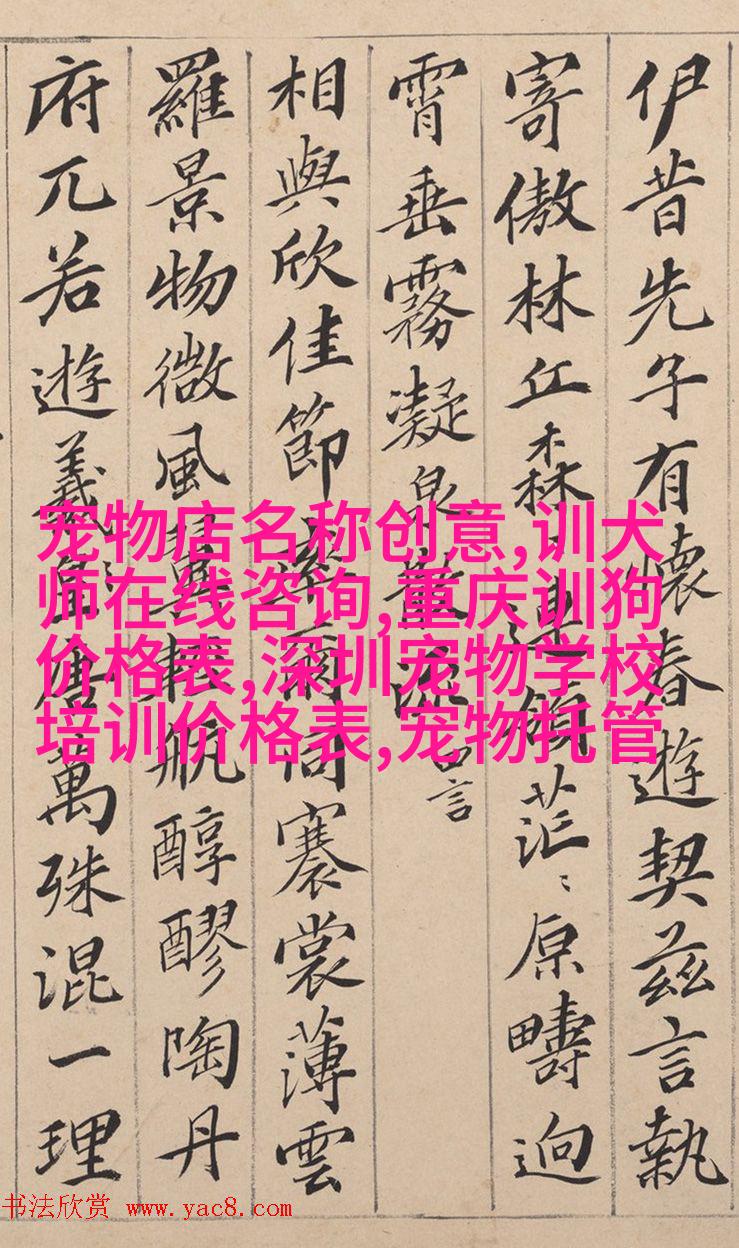 伊昔先子有懷春遊契茲言執
寄傲林丘森〻連嶺茫〻原疇迥
霄垂霧凝泉散流 言
相與欣佳節率爾同褰裳薄雲
羅景物微風翼輕航醇醪陶丹
府兀若遊羲唐萬殊混一理
宠物店名称创意,训犬
师在线咨询,重庆训狗
价格表,深圳宠物学校
培训价格表,宠物托管
书法欣赏 www.yac8.com